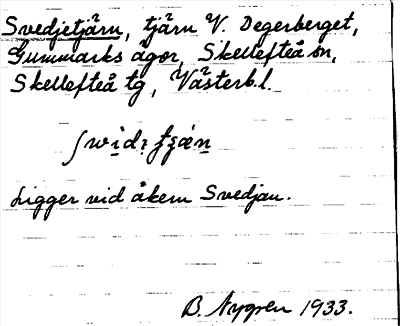 Svedjetjärn, tjärn V. Degerberget,
Gummarks ägor, Skellefteå sn,
Skellefteå tg, Västerb.l.
Ligger vid åkern Svedjan.
B. Nygren 1933.